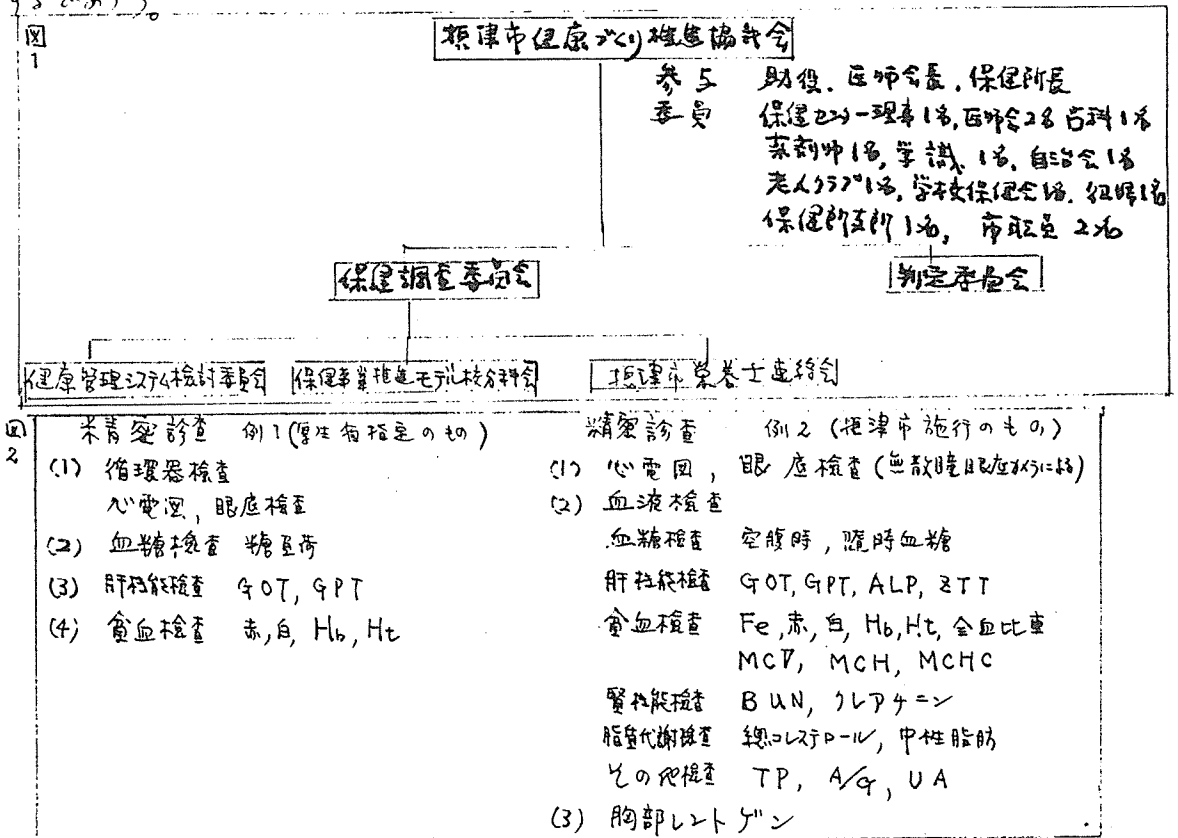 するであろう。
図1
摂津市健康づくり推進協議会
参与 助役、医師会長、保健所長
委員 保健センター理事1名、医師会2名 歯科1名
薬剤師1名、学識、1名、自治会1名
老人クラブ1名、学校保健会1名、
保健所支所1名、 市職員 2名
保健調査委員会
判定委員会
健康管理システム検討委員会
保健事業推進モデル校分科会
摂津市栄養士連絡会
図2
精密診査 例1(厚生省指定のもの)
(1) 循環器検査
心電図, 眼底検査
(2) 血糖検査 糖負荷
(3) 肝機能検査 GOT, GPT
(4) 貧血検査 赤, 白, Hb, Ht
精密診査 例2 (摂津市施行のもの)
(1) 心電図, 眼底検査(無散瞳眼底カメラによる)
(2) 血液検査
血糖検査 空腹時, 随時血糖
肝機能検査 GOT, GPT, ALP, ZTT
貧血検査 Fe, 赤, 白, Hb, Ht, 全血比重
MCV, MCH, MCHC
腎機能検査 BUN, クレアチニン
脂質代謝検査 総コレステロール, 中性脂肪
その他検査 TP, A/G, UA
(3) 胸部レントゲン